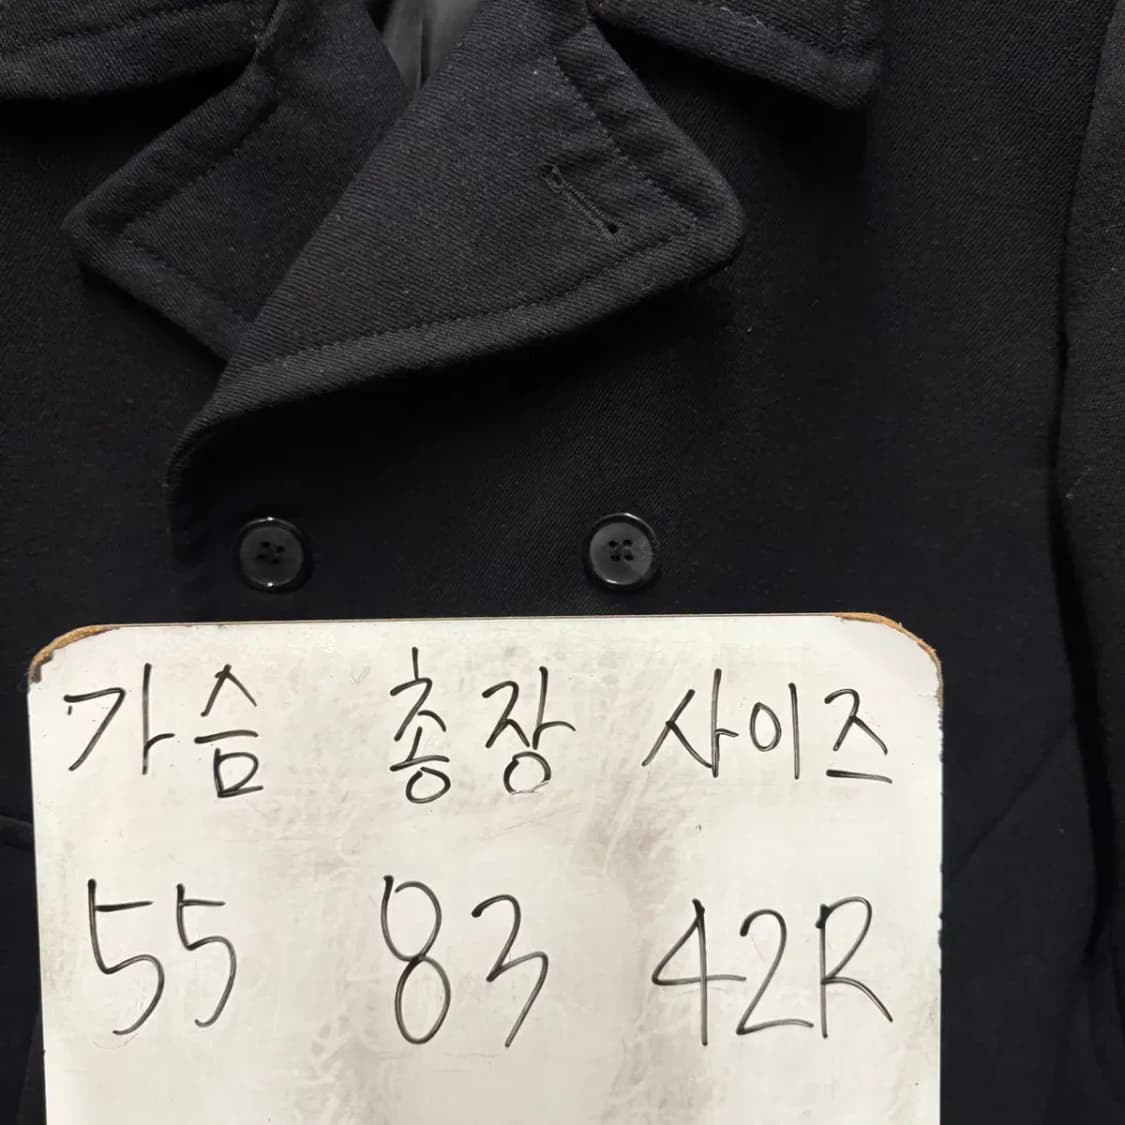 가슴 총장 사이즈
55 83 42R